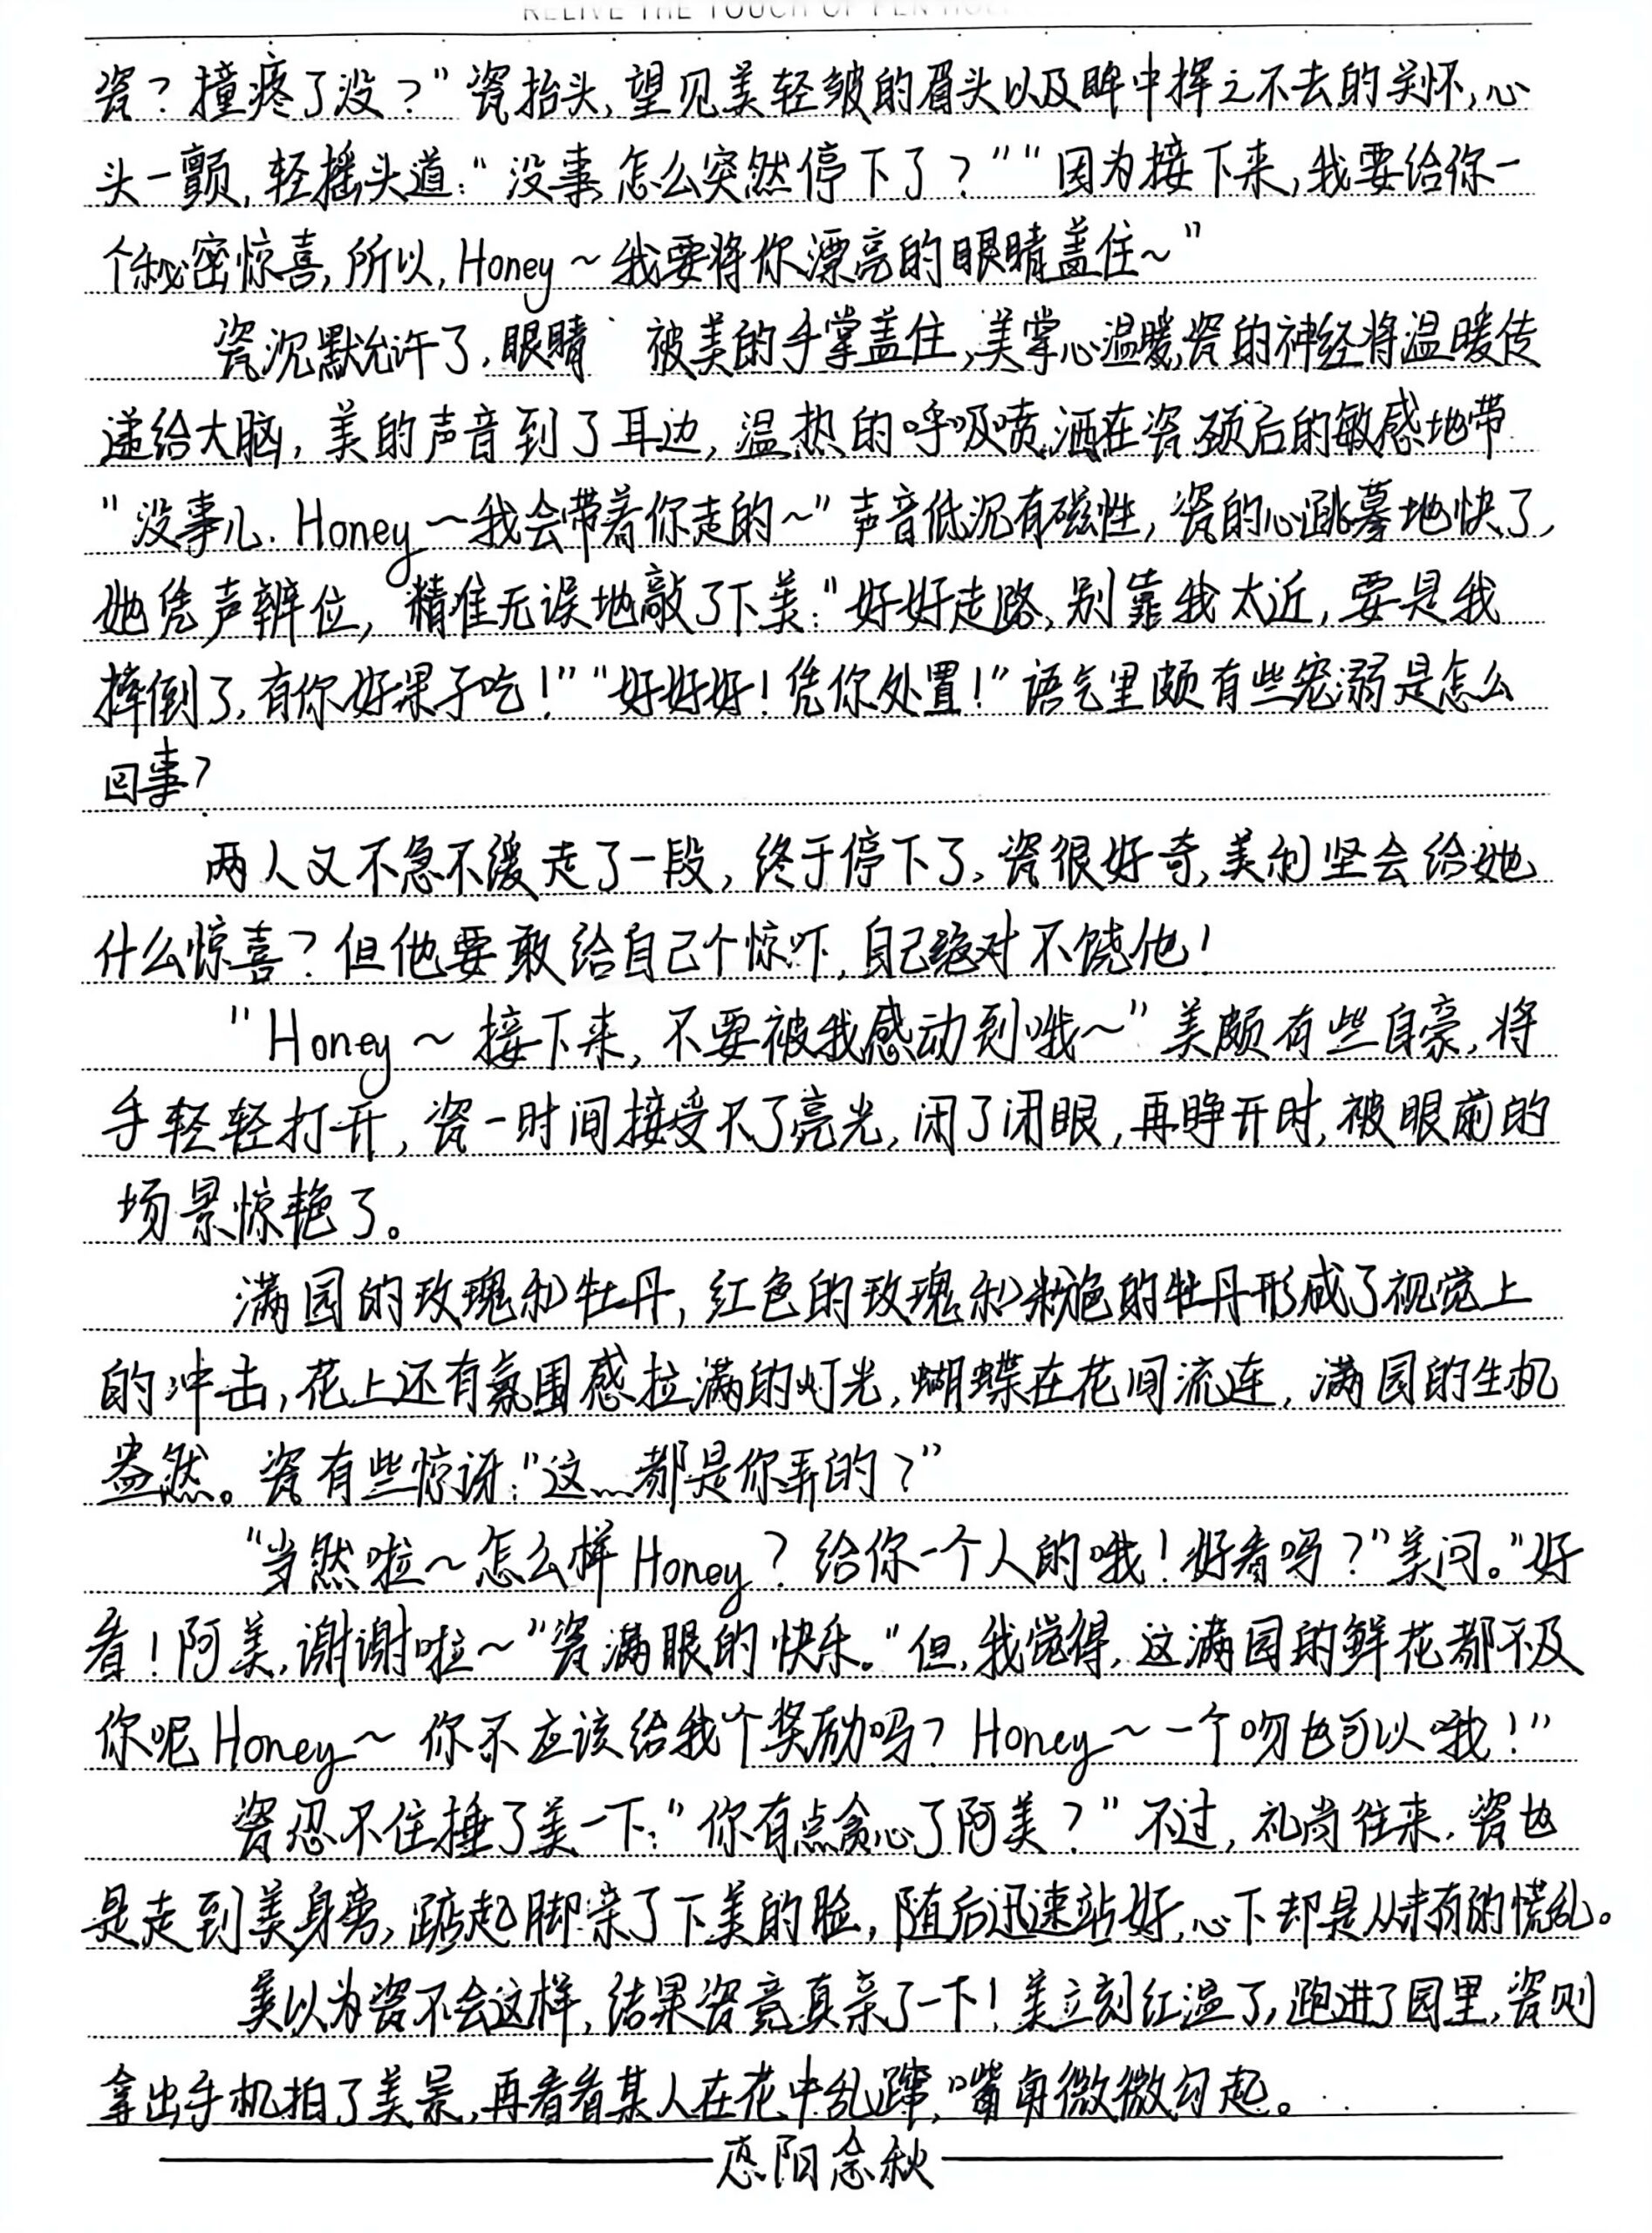 RELIVE THE TOUCH OF PEN
瓷？撞疼了没？"瓷抬头,望见美轻皱的眉头以及眸中挥之不去的关怀,心
头一颤,轻摇头道:"没事,怎么突然停下了？""因为接下来,我要给你一
个秘密惊喜,所以,Honey~我要将你漂亮的眼睛盖住~"
瓷沉默允许了,眼睛 被美的手掌盖住,美掌心温暖,瓷的神经将温暖传
递给大脑,美的声音到了耳边,温热的呼吸喷洒在瓷颈后的敏感地带
"没事儿.Honey~我会带着你走的~"声音低沉有磁性,瓷的心跳蓦地快了,
她凭声辨位,精准无误地敲了下美:"好好走路,别靠我太近,要是我
摔倒了,有你好果子吃!""好好好!凭你处置!"语气里颇有些宠溺是怎么
回事?
两人又不急不缓走了一段,终于停下了,瓷很好奇,美利坚会给她
什么惊喜？但他要敢给自己个惊吓,自己绝对不饶他!
"Honey~接下来,不要被我感动到哦~"美颇有些自豪,将
手轻轻打开,瓷一时间接受不了亮光,闭了闭眼,再睁开时,被眼前的
场景惊艳了。
满园的玫瑰和牡丹,红色的玫瑰和粉色的牡丹形成了视觉上
的冲击,花上还有氛围感拉满的灯光,蝴蝶在花间流连,满园的生机
盎然。瓷有些惊讶:"这...都是你弄的?"
"当然啦~怎么样Honey?给你一个人的哦!好看吗?"美问。"好
看!阿美,谢谢啦~"瓷满眼的快乐。"但,我觉得,这满园的鲜花都不及
你呢Honey~你不应该给我个奖励吗?Honey~一个吻也可以哦!"
瓷忍不住捶了美一下:"你有点贪心了阿美?"不过,礼尚往来,瓷也
是走到美身旁,踮起脚亲了下美的脸,随后迅速站好,心下却是从未有的慌乱。
美以为瓷不会这样,结果瓷竟真亲了一下!美立刻红温了,跑进了园里,瓷则
拿出手机拍了美景,再看看某人在花中乱蹿,嘴角微微勾起。
恋阳念秋